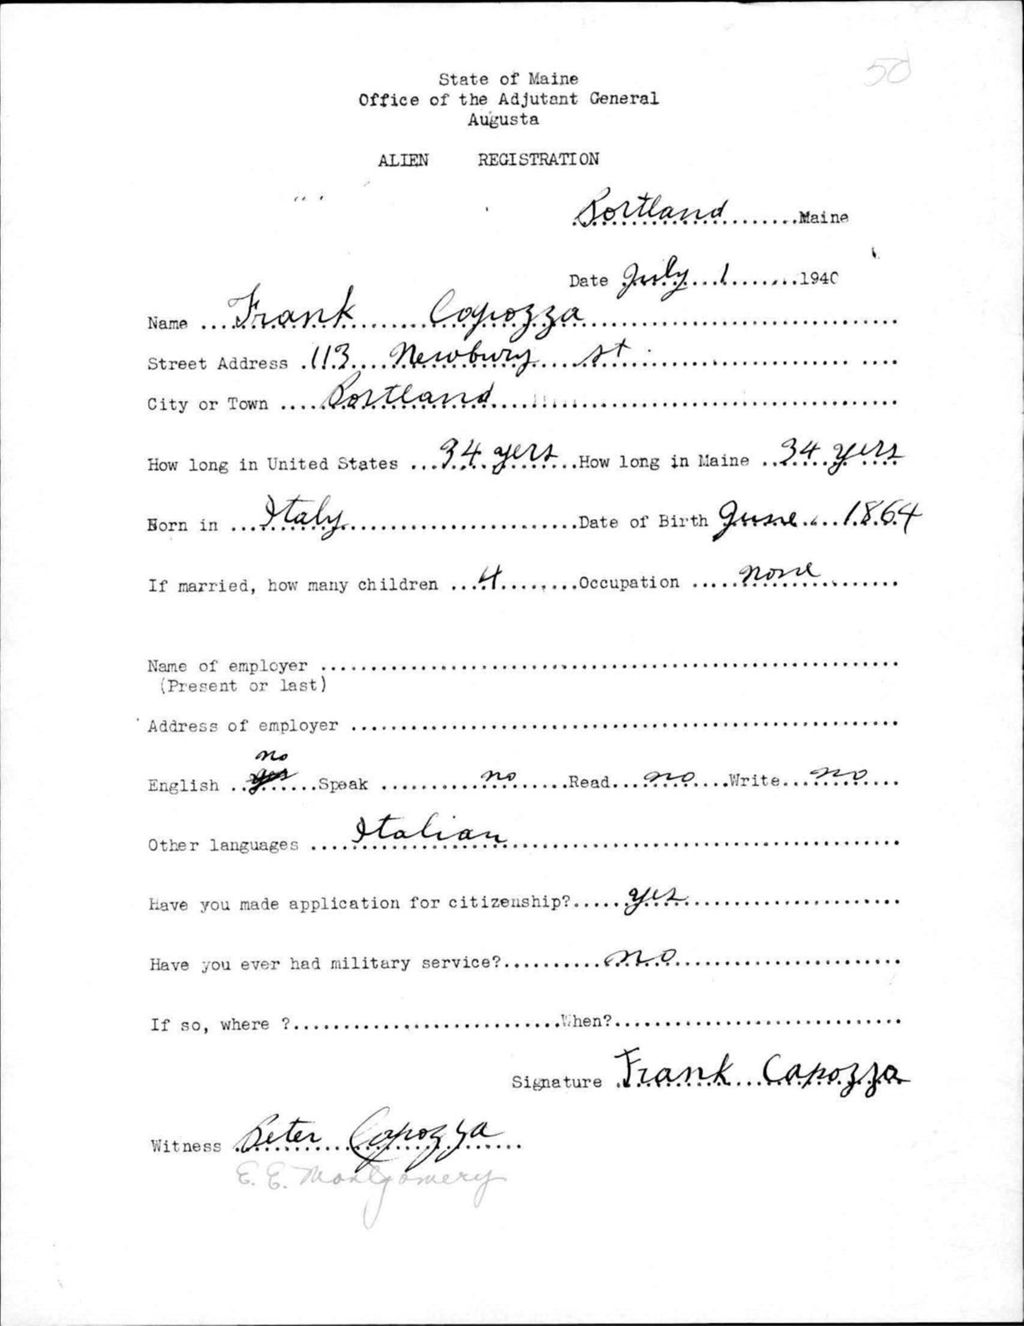 50
State of Maine
Office of the Adjutant General
Augusta
ALIEN REGISTRATION
Portland........Maine
Date July...1........1940
Name ...Frank.......Capozza...............................
Street Address .113....Newbury....st........................ ....
City or Town ....Portland.......................................
How long in United States ...34.yers..How long in Maine ..34..yers
Born in ...Italy...........................Date of Birth June....1864
If married, how many children ...4.........Occupation .....none........
Name of employer ..........................................................
(Present or last)
Address of employer .......................................................
no
English ..yes......Speak ..........no.......Read....no....Write...no....
Other languages ....Italian............................................
Have you made application for citizenship?.....yes......................
Have you ever had military service?..........no.........................
If so, where ?...........................When?.............................
Signature .Frank...Capozza
Witness Peter Capozza...
E. E. Montgomery